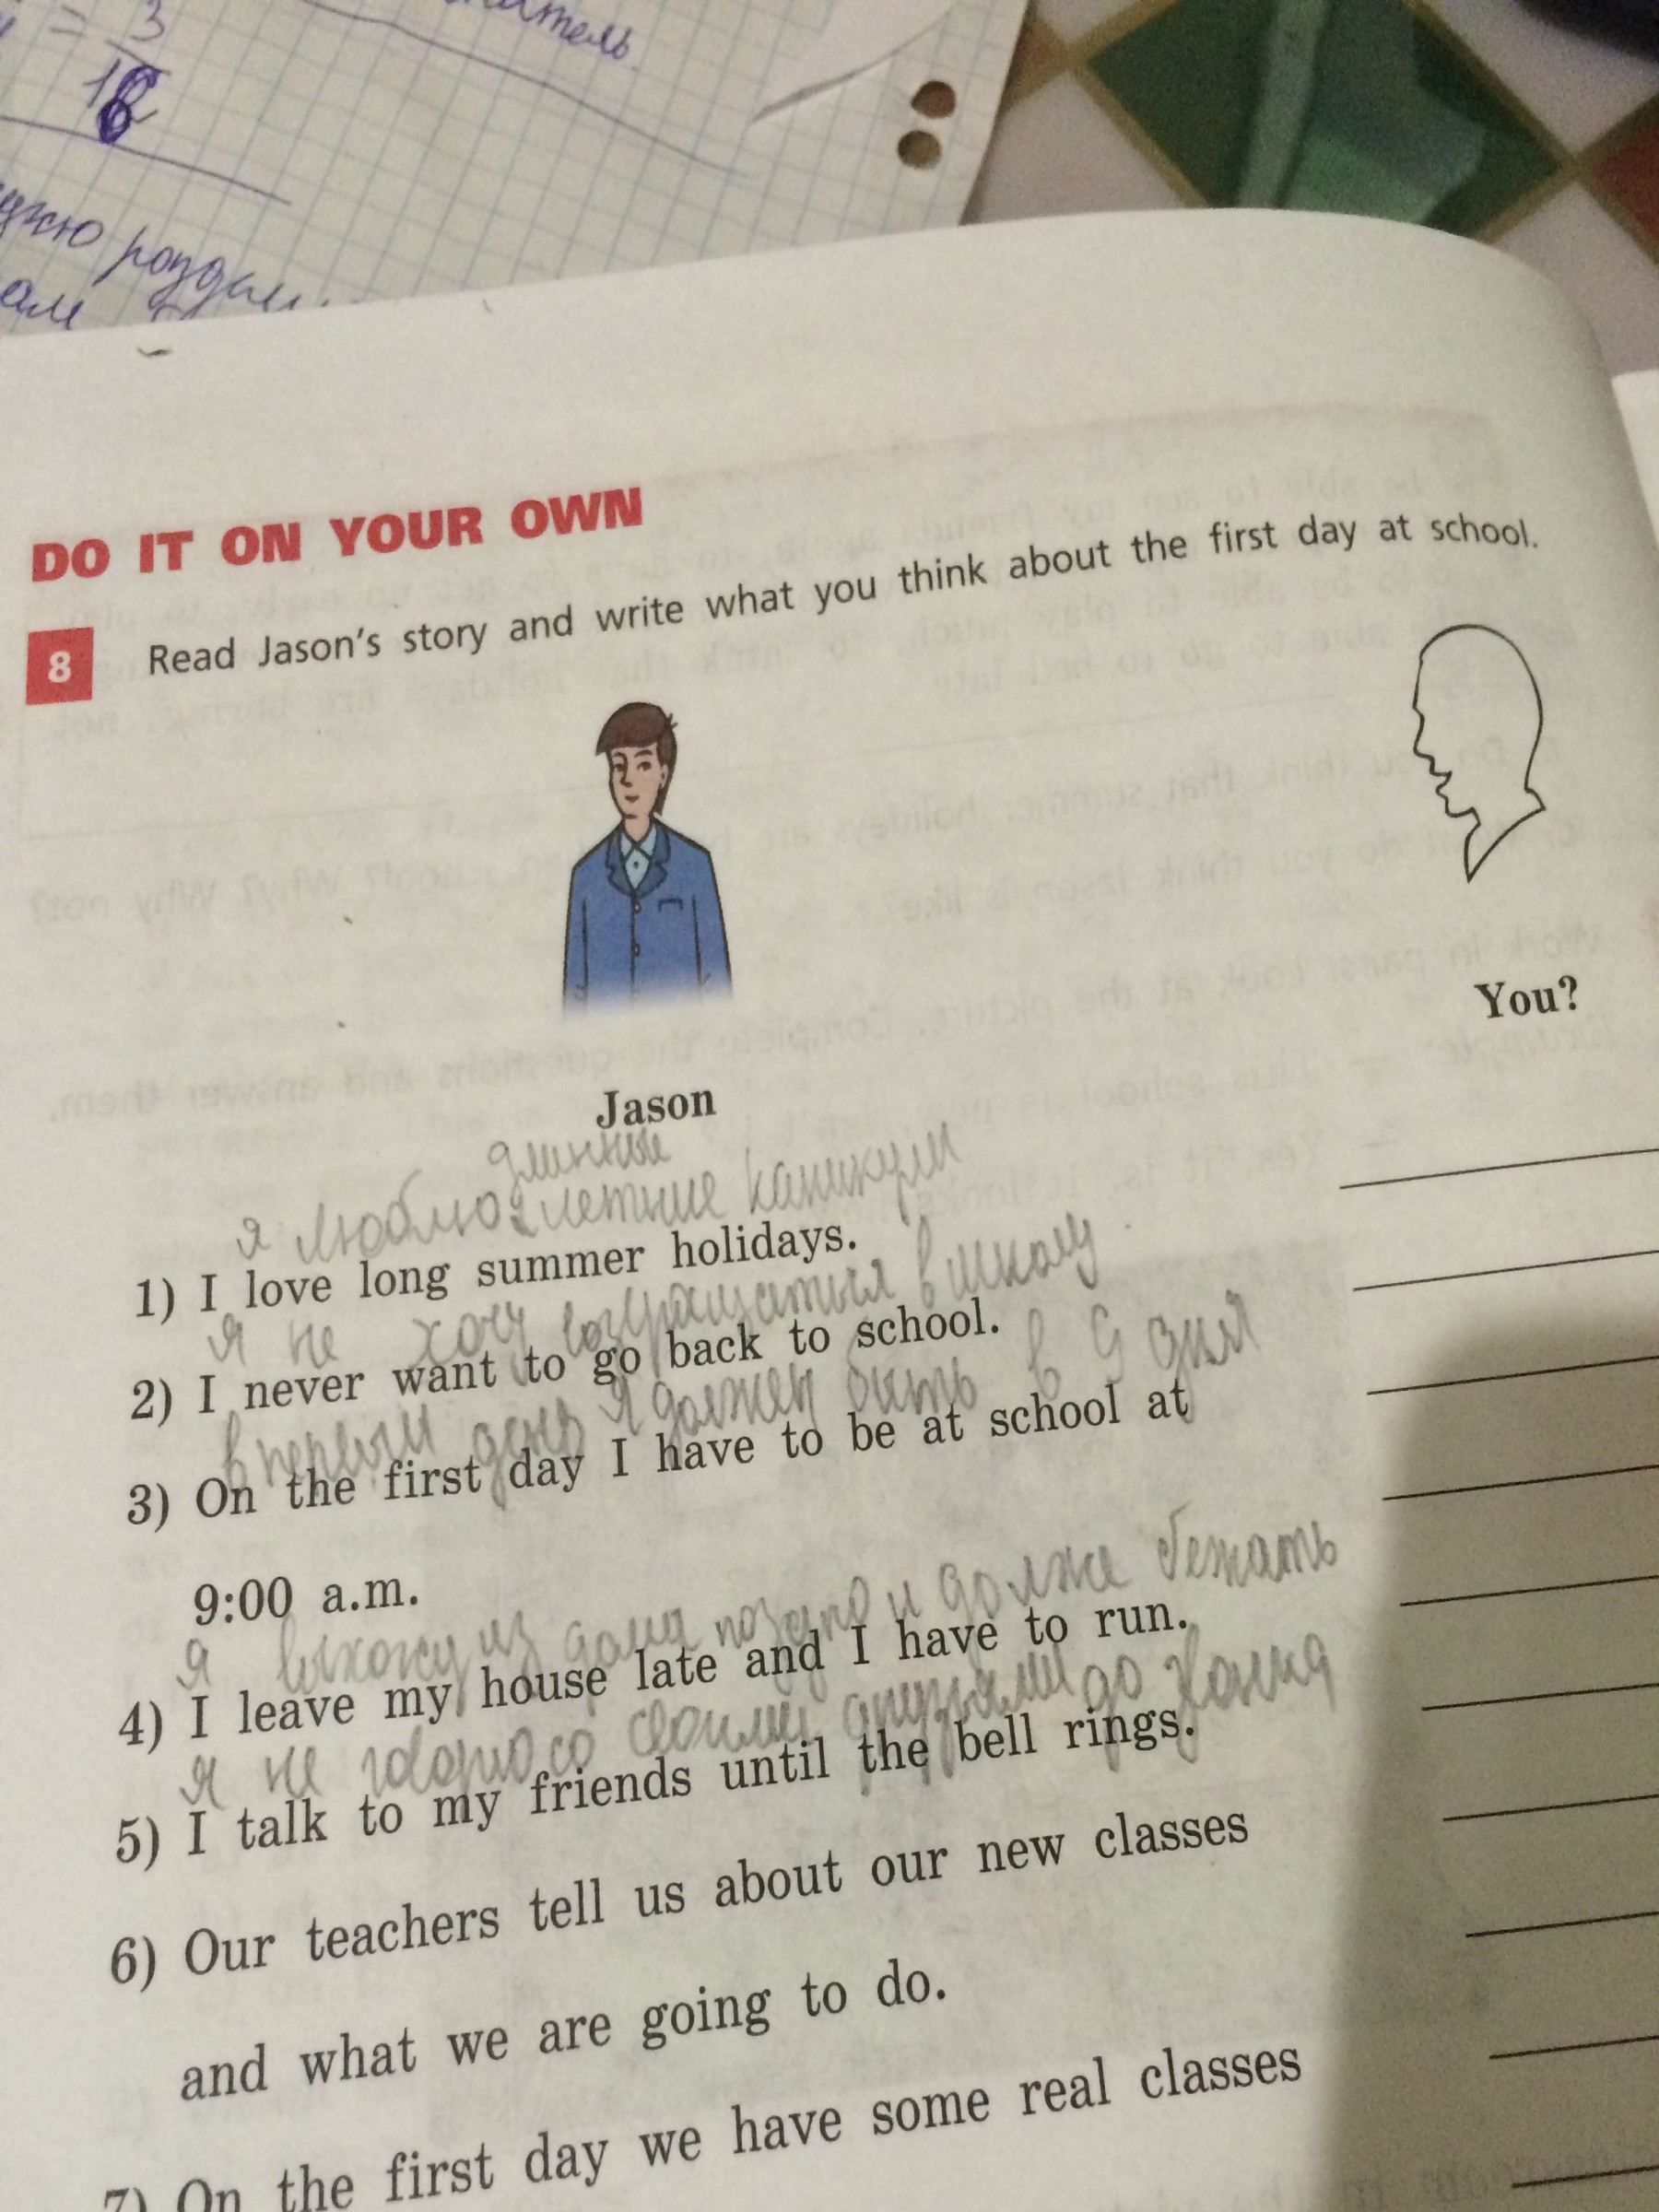 = 3
18
читель
ужю роздал
али
DO IT ON YOUR OWN
8 Read Jason's story and write what you think about the first day at school.
You?
Jason
длинные
я люблю летние каникулы
1) I love long summer holidays.
я не хочу возвращаться в школу.
2) I never want to go back to school.
в первый день я должен быть в 9 дня
3) On the first day I have to be at school at
9:00 a.m.
я выхожу из дома поздно и должен бежать
4) I leave my house late and I have to run.
я не говорю со своими друзьями до звонка
5) I talk to my friends until the bell rings.
6) Our teachers tell us about our new classes
and what we are going to do.
7) On the first day we have some real classes